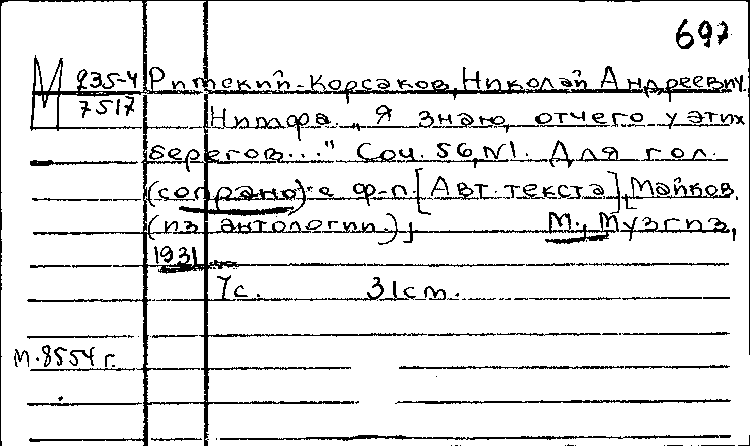 697
М 235-4 Римский-Корсаков, Николай Андреевич
7517
Нимфа. „Я знаю, отчего у этих
берегов..." Соч. 56, №1. Для гол.
(сопрано) с ф-п. [Авт. текста], Майков.
(из антологии.), М., Музгиз,
1931
7с. 31cm.
М.8554г.